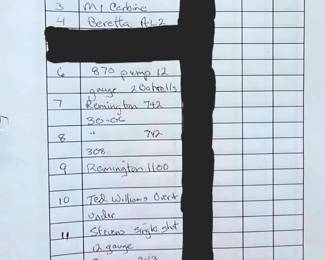 3 M1 Carbine
4 Beretta AL2
6 870 pump 12
gauge 2
7 Remington 742
30-06
8 " 742
308
9 Remington 1100
10 Ted Williams Over +
under
11 Stevens single shot
12 gauge